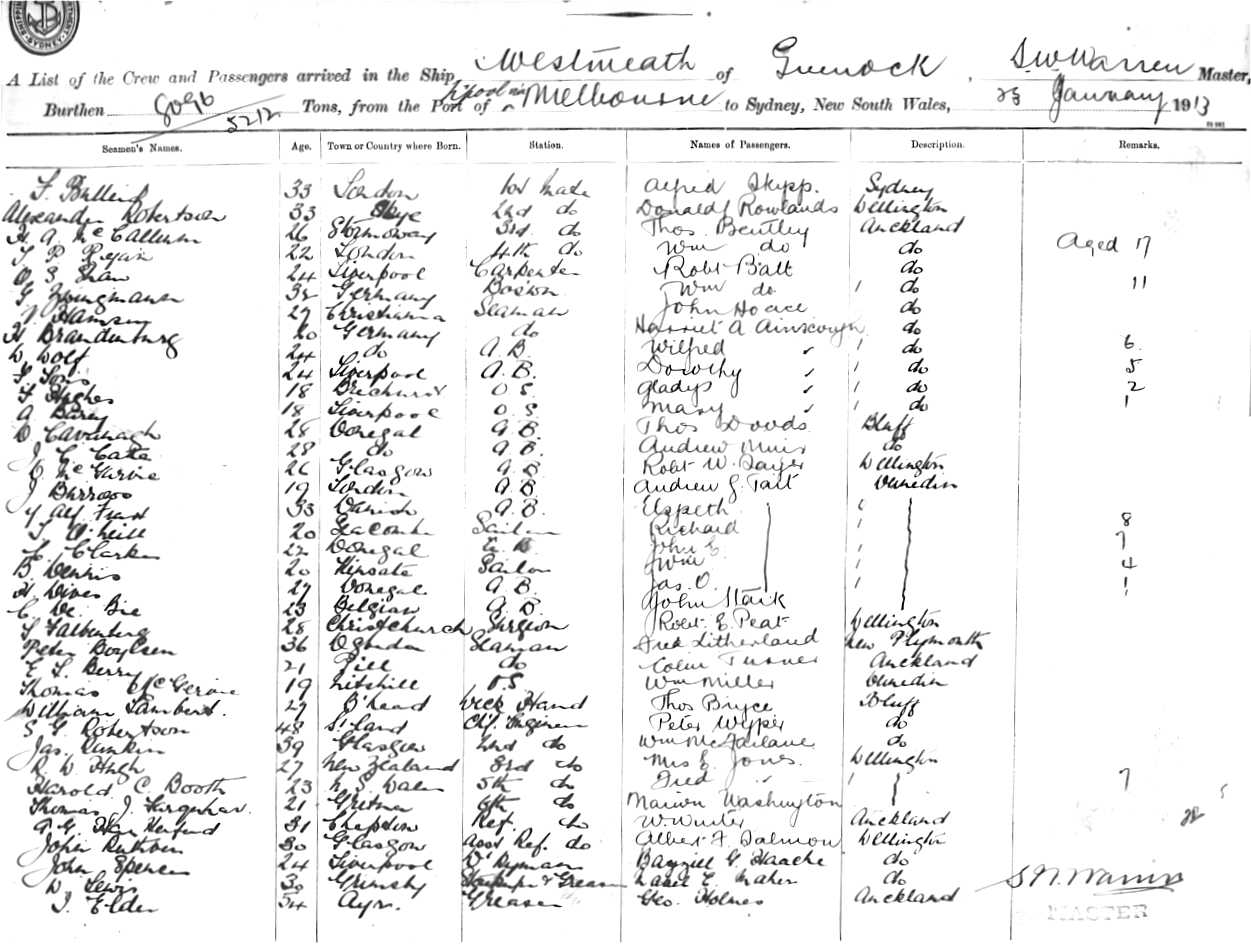 SYDNEY
A List of the Crew and Passengers arrived in the Ship Westmeath of Greenock, S.W. Warren Master,
Burthen 8096 / 5212 Tons, from the Port of L'pool via Melbourne to Sydney, New South Wales, 23 January 1913
Seamen's Names. Age. Town or Country where Born. Station. Names of Passengers. Description. Remarks.
33 London 1st Mate Alfred Skipp. Sydney
Alexander Robertson 33 Skye 2nd do Donald Rowlands Wellington
H. A. McCallum 26 Stornoway 3rd do Thos. Bentley Auckland
T. P. Ryan 22 London 4th do Wm do do Aged 17
O. S. Shaw 24 Liverpool Carpenter Robt Batt do
G. Zwingmann 32 Germany Boswn Wm do do 11
Hansen 27 Christiania Seaman John Hoare do
H. Brandenburg 20 Germany do Harriet A Ainscough do
W. Wolf 24 do A.B. Wilfred do 6
24 Liverpool A.B. Dorothy do 5
Hughes 18 O.S. Gladys do 2
A 18 Liverpool O.S. Mary do 1
D Cavanagh 28 Donegal A.B. Thos Dodds Bluff
28 do A.B. Andrew Muir do
26 Glasgow A.B. Robt W. Sayer Wellington
J Burrows 19 London A.B. Andrew G. Tait Dunedin
33 Danish A.B. Elspeth
O'Neill 20 Sailor Richard 8
Clarke 22 Donegal John E. 7
B. Dennis 20 Kinsale Sailor Wm 4
H. Dives 27 Donegal A.B. Jas. O. 1
C. De Bie 23 Belgian A.B. John Stark
S Falkenberg 28 Christchurch Surgeon Robt. E. Peat Wellington
Peter Boylsen 36 Seaman Fred Litherland New Plymouth
E. L. Berry 21 Pill do Colin Turner Auckland
Thomas McGervie 19 Nitshill O.S. Wm Miller Dunedin
William Lambert. 27 B'head Deck Hand Thos Bryce Bluff
S. G. Robertson 48 S'land Chf. Engineer Peter Wyper do
Jas. Rankin 39 Glasgow 2nd do Wm McFarlane do
R. W. Hugh 27 New Zealand 3rd do Mrs E. Jones. Wellington
Harold C. Booth 23 N. S. Wales 5th do Fred 7
Thomas J. Farquhar. 21 Gretna 6th do Marion Washington
31 Chepstow Ref. do W. Winter Auckland 28
John Ruthven 30 Glasgow Asst Ref. do Albert F. Salmon Wellington
John Spencer 24 Liverpool D'kyman G. Haache do
W. Lewis 30 Grimsby Storekeeper & Greaser E. Maher do S.W. Warren
J. Elder 34 Ayr. Greaser Geo. Holmes Auckland MASTER